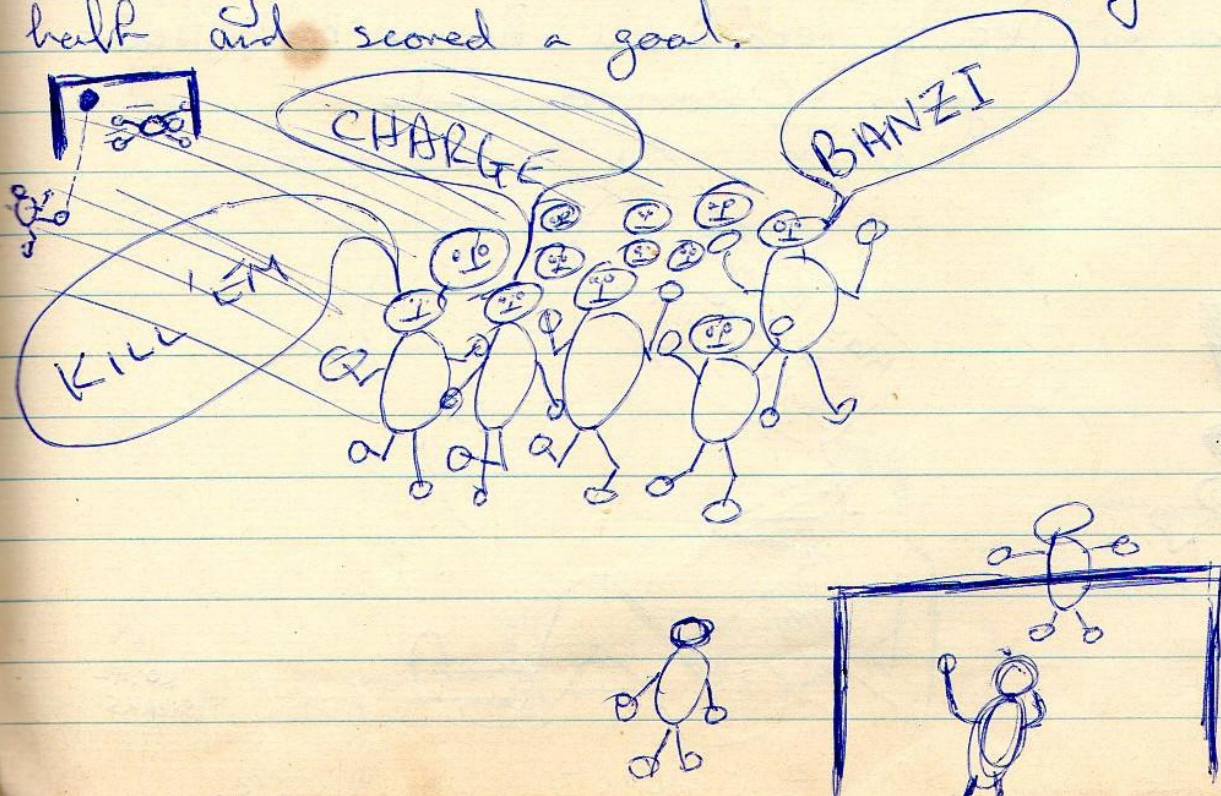 half and scored a goal.
CHARGE
BANZI
KILL 'EM